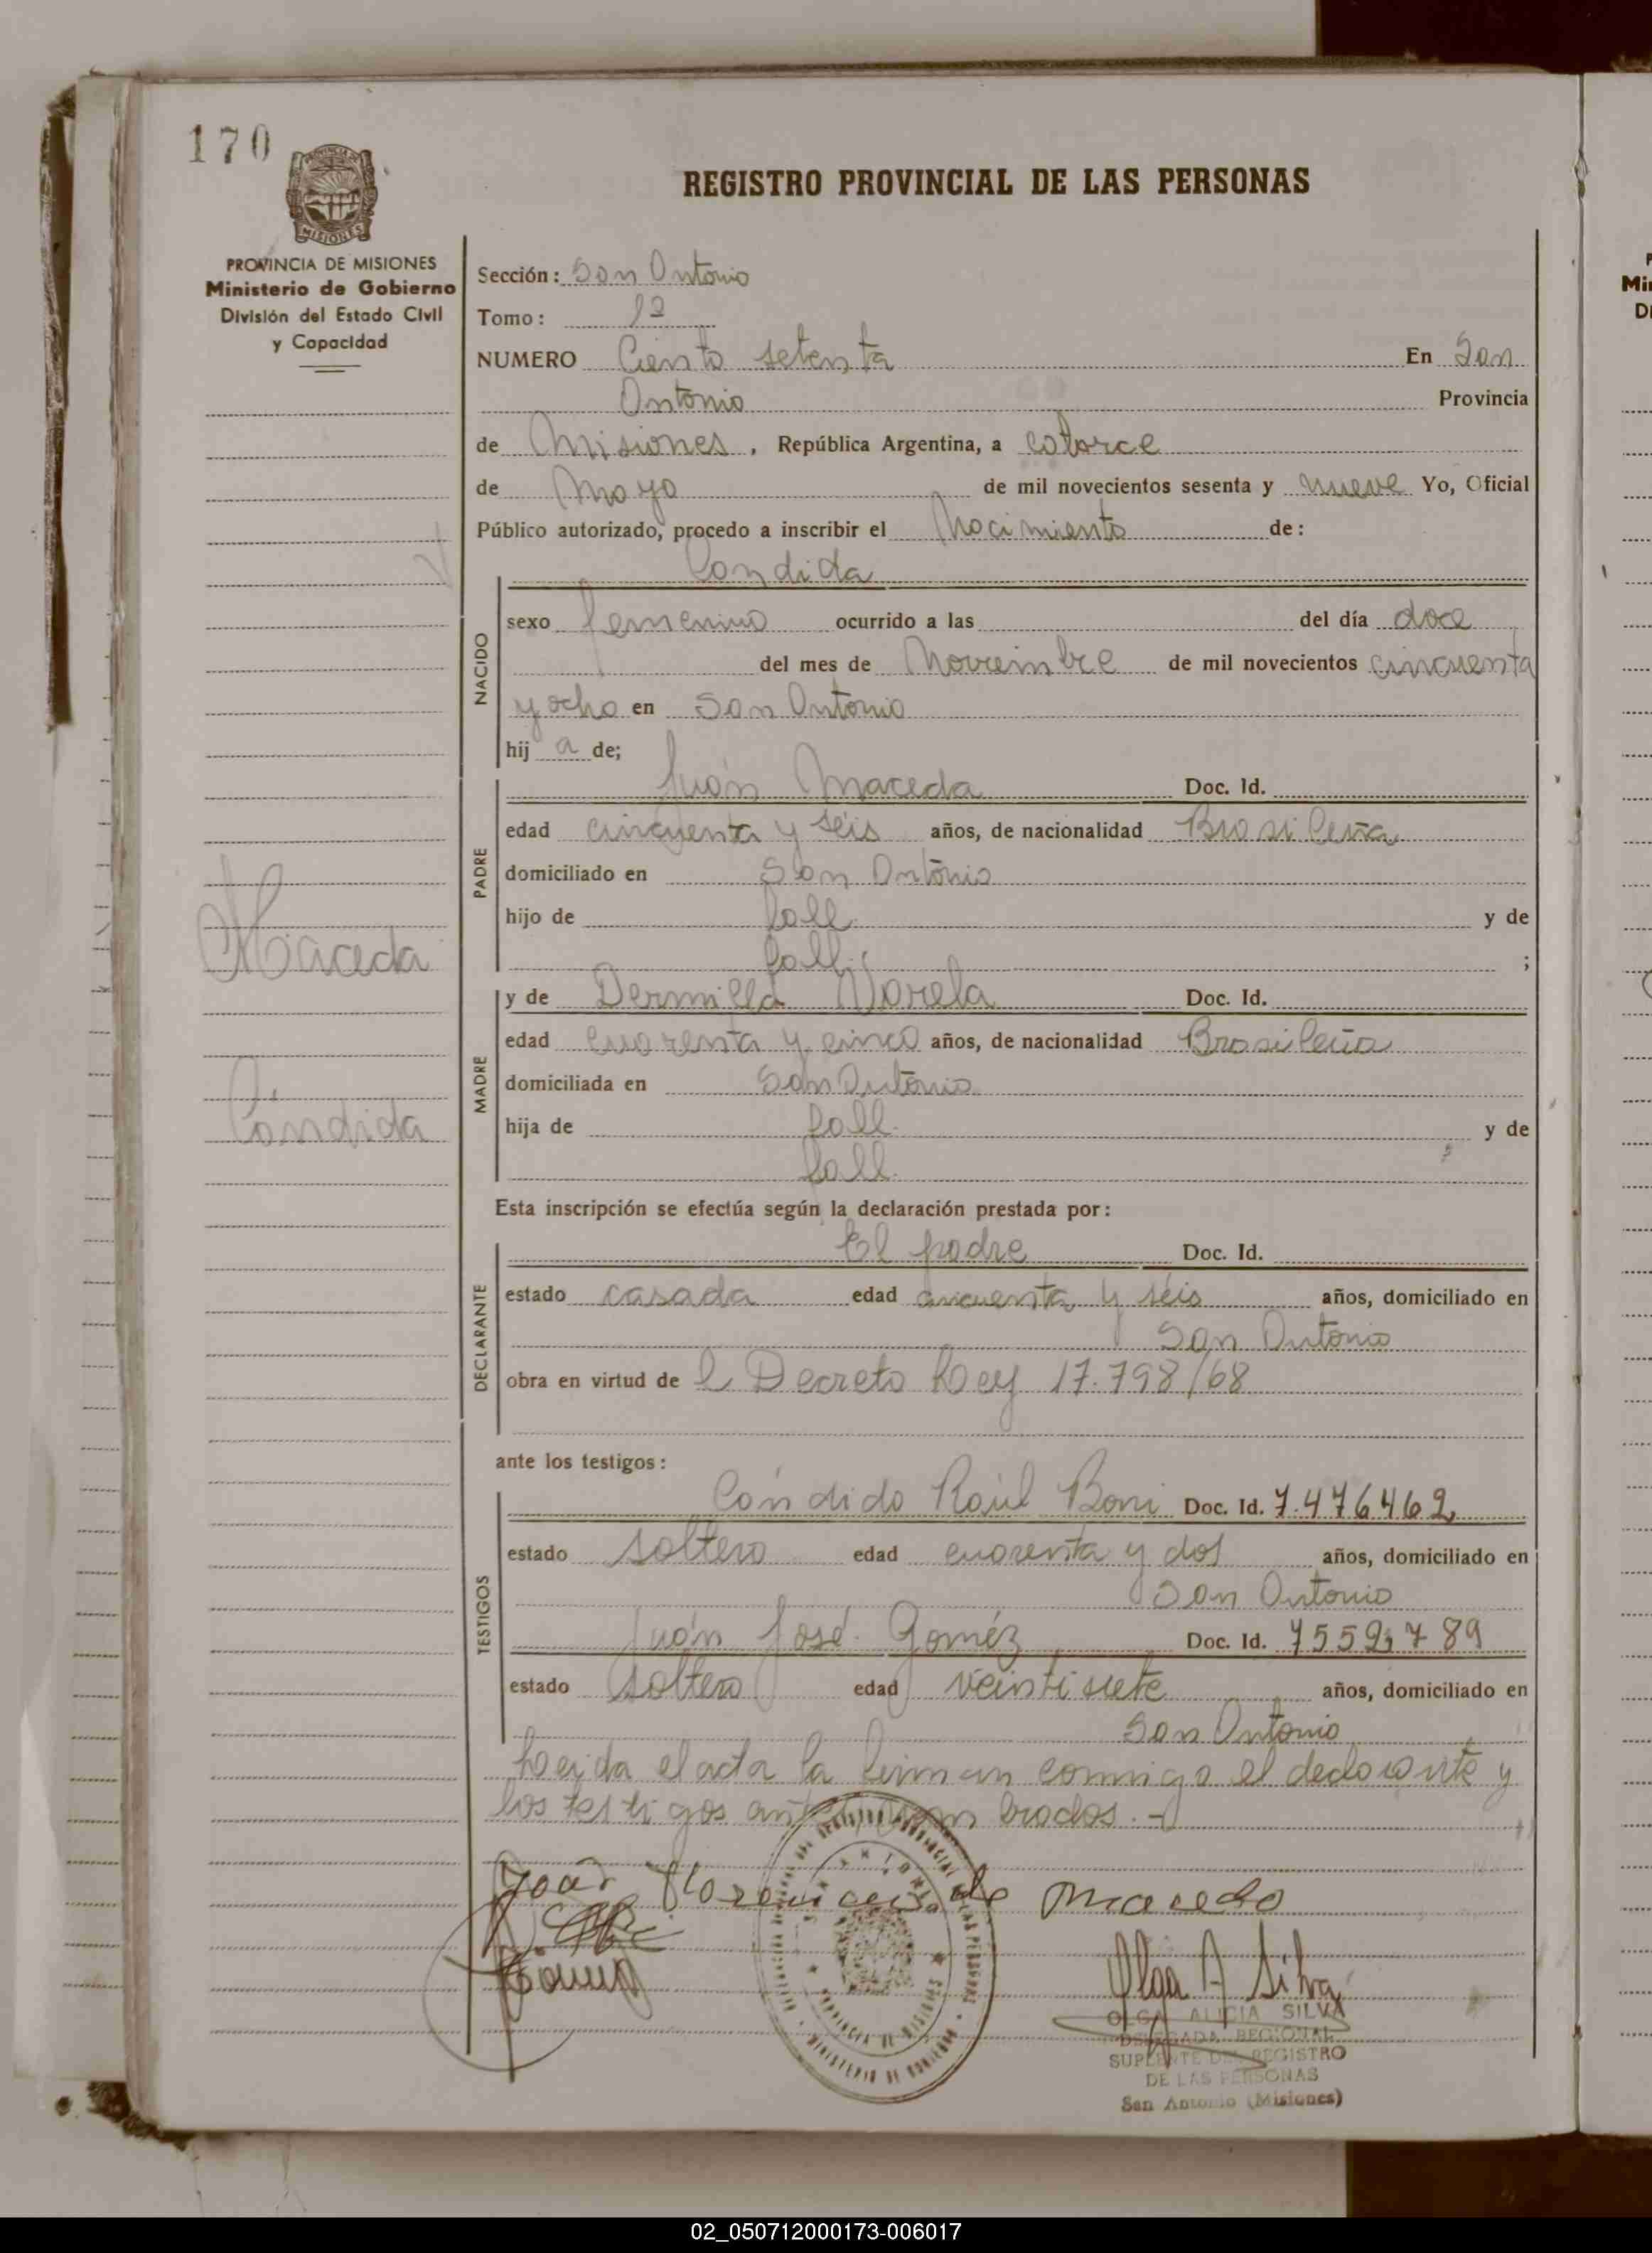 170
REGISTRO PROVINCIAL DE LAS PERSONAS
PROVINCIA DE MISIONES
Ministerio de Gobierno
División del Estado Civil
y Capacidad
Sección: San Antonio
Tomo: 1º
NUMERO Ciento setenta En San
Antonio Provincia
de Misiones, República Argentina, a catorce
de Mayo de mil novecientos sesenta y nueve Yo, Oficial
Público autorizado, procedo a inscribir el Nacimiento de:
Candida
NACIDO
sexo femenino ocurrido a las del día doce
del mes de Noviembre de mil novecientos cincuenta
y ocho en San Antonio
hij a de;
PADRE
Juán Maceda Doc. Id.
edad cincuenta y séis años, de nacionalidad Brasileña
domiciliado en San Antonio
hijo de fall. y de
fall. ;
Maceda
Cándida
MADRE
y de Dermilla Varela Doc. Id.
edad cuarenta y cinco años, de nacionalidad Brasileña
domiciliada en San Antonio
hija de fall. y de
fall.
Esta inscripción se efectúa según la declaración prestada por:
DECLARANTE
El padre Doc. Id.
estado casada edad cincuenta y séis años, domiciliado en
San Antonio
obra en virtud de l Decreto Ley 17.798/68
ante los testigos:
TESTIGOS
Cándido Raúl Boni Doc. Id. 7.476462
estado soltero edad cuarenta y dos años, domiciliado en
San Antonio
Juán José Goméz Doc. Id.
estado soltero edad veintisiete años, domiciliado en
San Antonio
Leida el acta la firman conmigo el declarante y
los testigos antes nombrados.-
João de Macedo
Olga A Silva
OLGA ALICIA SILVA
DELEGADA REGIONAL
SUPLENTE DEL REGISTRO
DE LAS PERSONAS
San Antonio (Misiones)
PROVINCIA DE MISIONES
MINISTERIO DE GOBIERNO
02_050712000173-006017